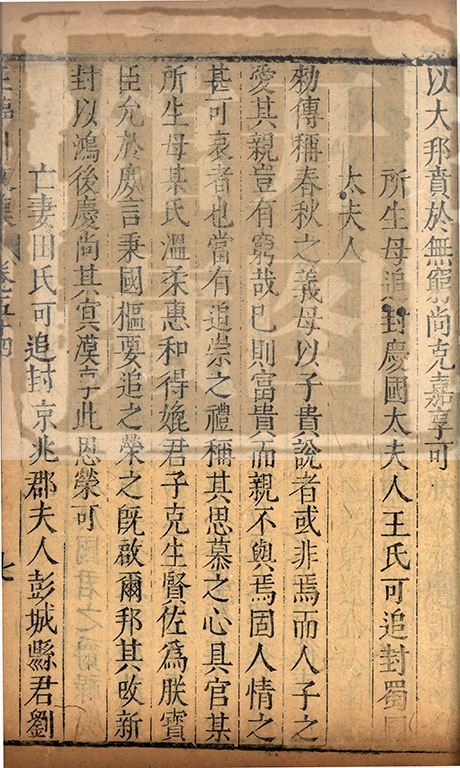 以大邦賁於無窮尚克嘉享可
所生母追封慶國太夫人王氏可追封蜀國
太夫人
勑傳稱春秋之義母以子貴說者或非焉而人子之
愛其親豈有窮哉已則富貴而親不與焉固人情之
甚可哀者也當有追崇之禮稱其思慕之心具官某
所生母某氏溫柔惠和得媲君子克生賢佐為朕寳
臣允於慶言秉國樞要追之榮之旣啟爾邦其改新
封以鴻後慶尚其㝠漠享此恩榮可
亡妻田氏可追封京兆郡夫人彭城縣君劉